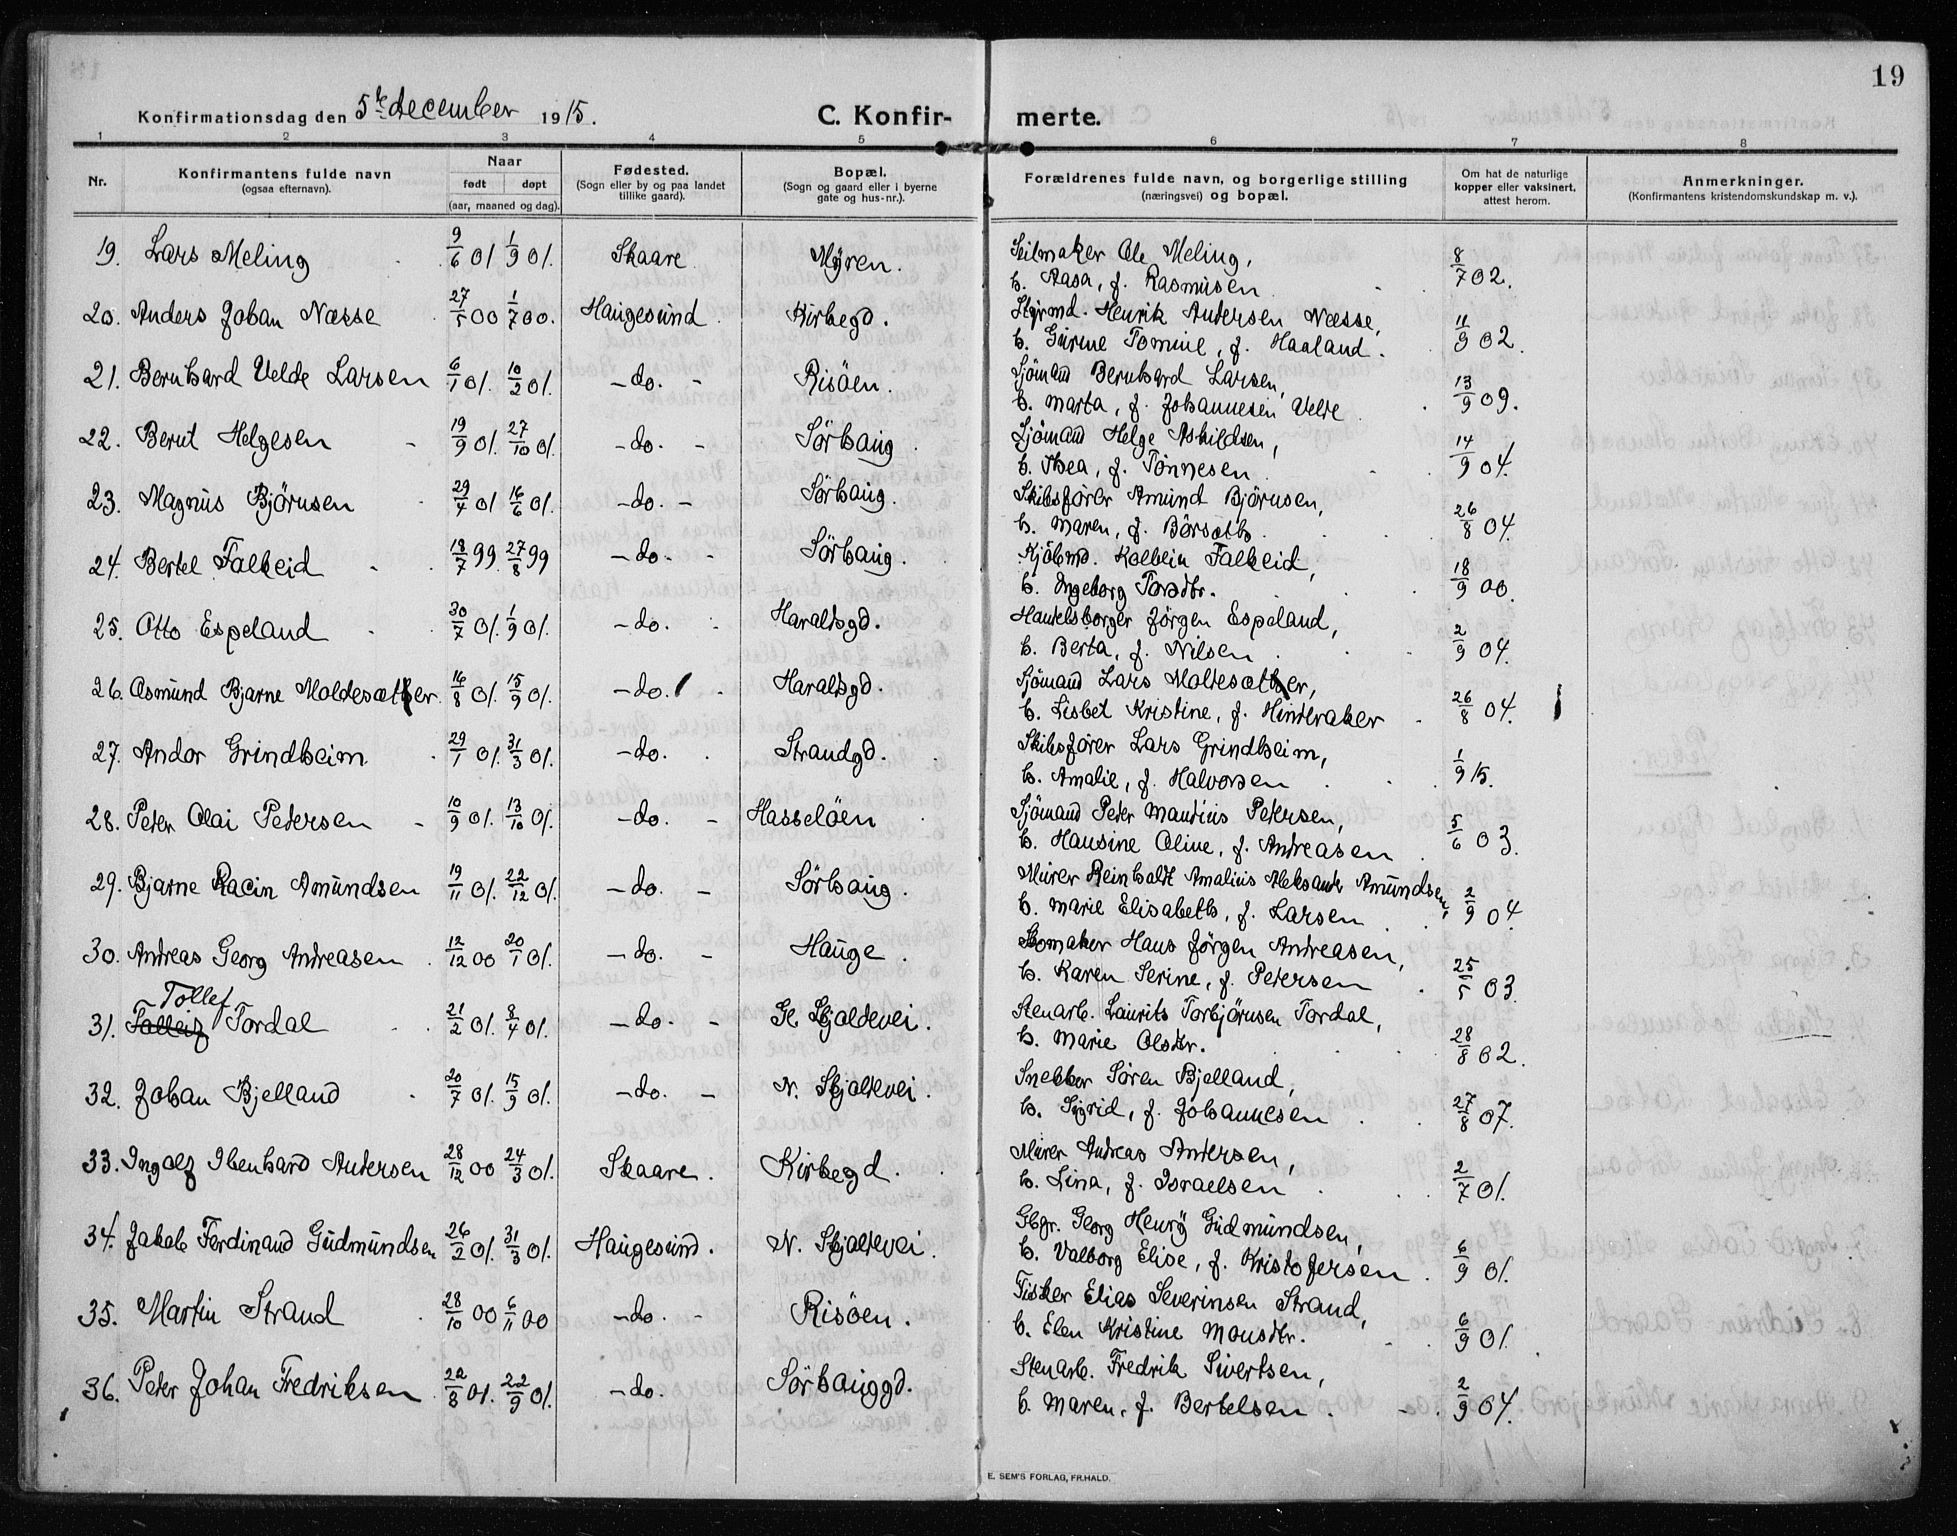 19
Konfirmationsdag den 5te december 1915. C. Konfirmerte.
1 2 3 4 5 6 7 8
Nr. Konfirmantens fulde navn (ogsaa efternavn). Naar født døpt (aar, maaned og dag). Fødested. (Sogn eller by og paa landet tillike gaard). Bopæl. (Sogn og gaard eller i byerne gate og hus-nr.). Forældrenes fulde navn, og borgerlige stilling (næringsvei) og bopæl. Om hat de naturlige kopper eller vaksinert, attest herom. Anmerkninger. (Konfirmantens kristendomskundskap m. v.).
19. Lars Meling 9/6 01 1/9 01. Skaare Myren. Seilmaker Ole Meling,
h. Aasa, f. Rasmusen 8/7 02.
20. Anders Johan Næsse 27/5 00 1/7 00. Haugesund Kirkegd. Styrmd. Henrik Andersen Næsse,
h. Gurine Tomine, f. Haaland. 11/9 02.
21. Bernhard Velde Larsen 6/1 01. 10/2 01. -do.- Risöen. Sjömand Bernhard Larsen,
h. Marta, f. Johannesen Velde 13/9 09.
22. Bernt Helgesen 19/9 01. 27/10 01. -do.- Sörhaug. Sjömand Helge Askildsen,
h. Thea, f. Tønnesen 14/9 04.
23. Magnus Björnsen 29/4 01 16/6 01. -do.- Sörhaug. Skibsfører Amund Björnsen,
h. Maren, f. Börsæth. 26/8 04.
24. Bertel Falkeid 18/7 99. 27/8 99 -do.- Sörhaug. Kjöbmd. Kolbein Falkeid,
h. Ingeborg Torsdtr. 18/9 00.
25. Otto Espeland 30/7 01. 1/9 01. -do. Haraldsgd. Handelsborger Jørgen Espeland,
h. Berta, f. Nilsen 2/9 04.
26. Osmund Bjarne Moldesæther. 16/8 01. 15/9 01. -do. Haraldsgd. Sjömand Lars Moldesæther,
h. Lisbet Kristine, f. Hinderaker 26/8 04.
27. Andor Grindheim 29/1 01. 31/3 01. -do. Strandgd. Skibsfører Lars Grindheim,
h. Amalie, f. Halvorsen 1/9 15.
28. Peter Olai Petersen 10/9 01. 13/10 01. -do.- Hasselöen Sjömand Peter Mandius Petersen,
h. Hansine Oline, f. Andreasen 5/6 03.
29. Bjarne Racin Amundsen 19/11 01. 22/12 01. -do.- Sörhaug. Murer Reinholdt Amalius Aleksander Amundsen,
h. Marie Elisabeth, f. Larsen 2/9 04.
30. Andreas Georg Andreasen 12/12 00 20/1 01. -do.- Hauge. Skomaker Hans Jørgen Andreasen,
h. Karen Serine, f. Petersen 25/5 03.
Tollef
31. Tolleif Tordal 21/2 01. 8/4 01. -do.- Gl. Skjoldevei. Stenarb. Laurits Torbjörnsen Tordal,
h. Marie Olsdtr. 28/8 02.
32. Johan Bjelland 20/7 01. 15/9 01. -do.- N. Skjoldevei. Snekker Sören Bjelland,
h. Sigrid, f. Johannesen 27/8 07.
33. Ingolf Ibenhard Andersen 28/12 00 24/3 01. Skaare. Kirkegd. Murer Andreas Andersen,
h. Lina, f. Israelsen 2/7 01.
34. Jakob Ferdinand Gudmundsen 26/2 01. 31/3 01. Haugesund. N. Skjoldevei. Gbgr. Georg Henry Gudmundsen,
h. Valborg Elise, f. Kristofersen 6/9 01.
35. Martin Strand 28/10 00 6/11 00 -do.- Risöen. Fisker Elias Severinsen Strand,
h. Elen Kristine Monsdtr. 6/9 01.
36. Peter Johan Fredriksen 22/8 01. 22/9 01. -do. Sörhauggd. Stenarb. Fredrik Sivertsen,
h. Maren, f. Bertelsen 2/9 04.
E. SEM'S FORLAG, FR.HALD.